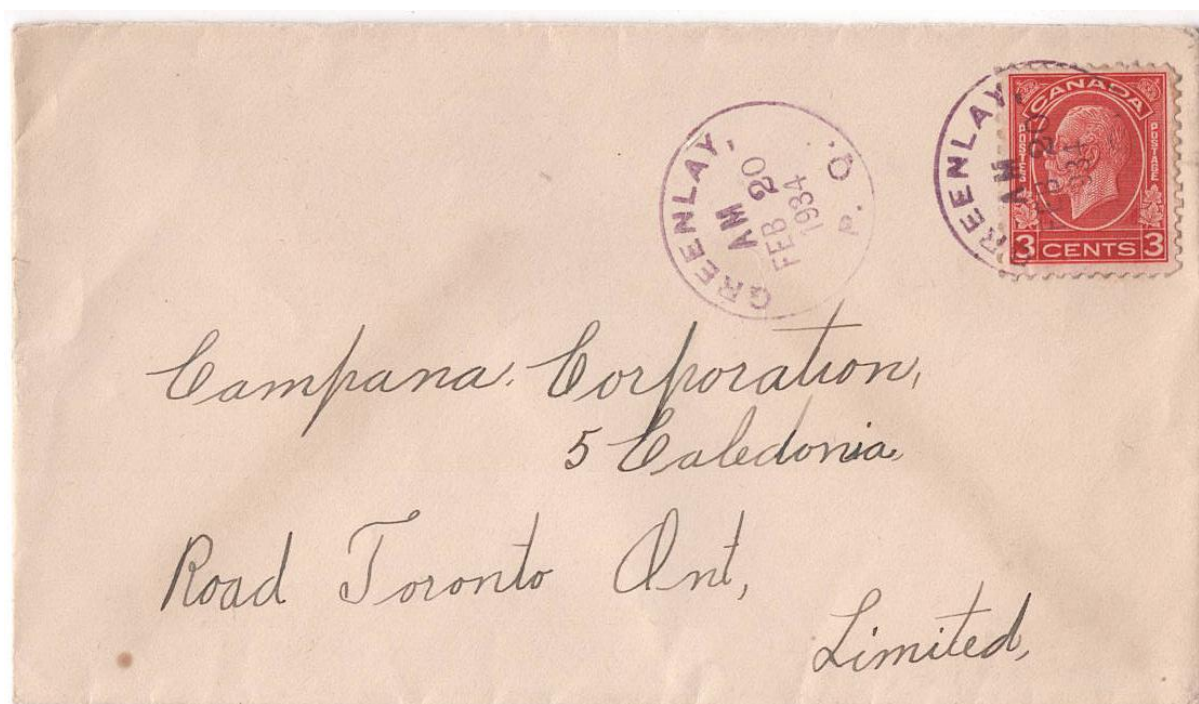 GREENLAY, P. Q.
AM
FEB 20
1934
GREENLAY,
AM
FEB 20
1934
CANADA
POSTES
POSTAGE
3 CENTS 3
Campana Corporation,
5 Caledonia,
Road Toronto Ont,
Limited,